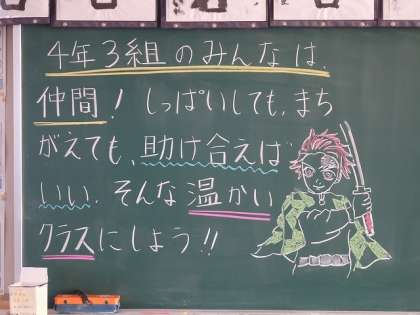 4年3組のみんなは、
仲間! しっぱいしても、まち
がえても、助け合えば
いい、そんな温かい
クラスにしよう!!